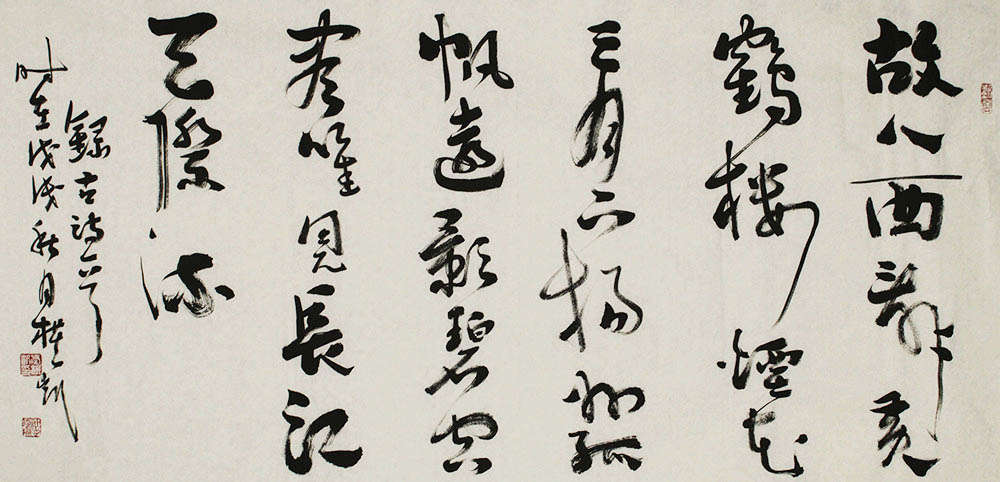 故人西辞黄
鶴楼煙花
三月下揚州孤
帆遠影碧空
尽唯見長江
天際流
録古詩一首
时在戊戌秋月